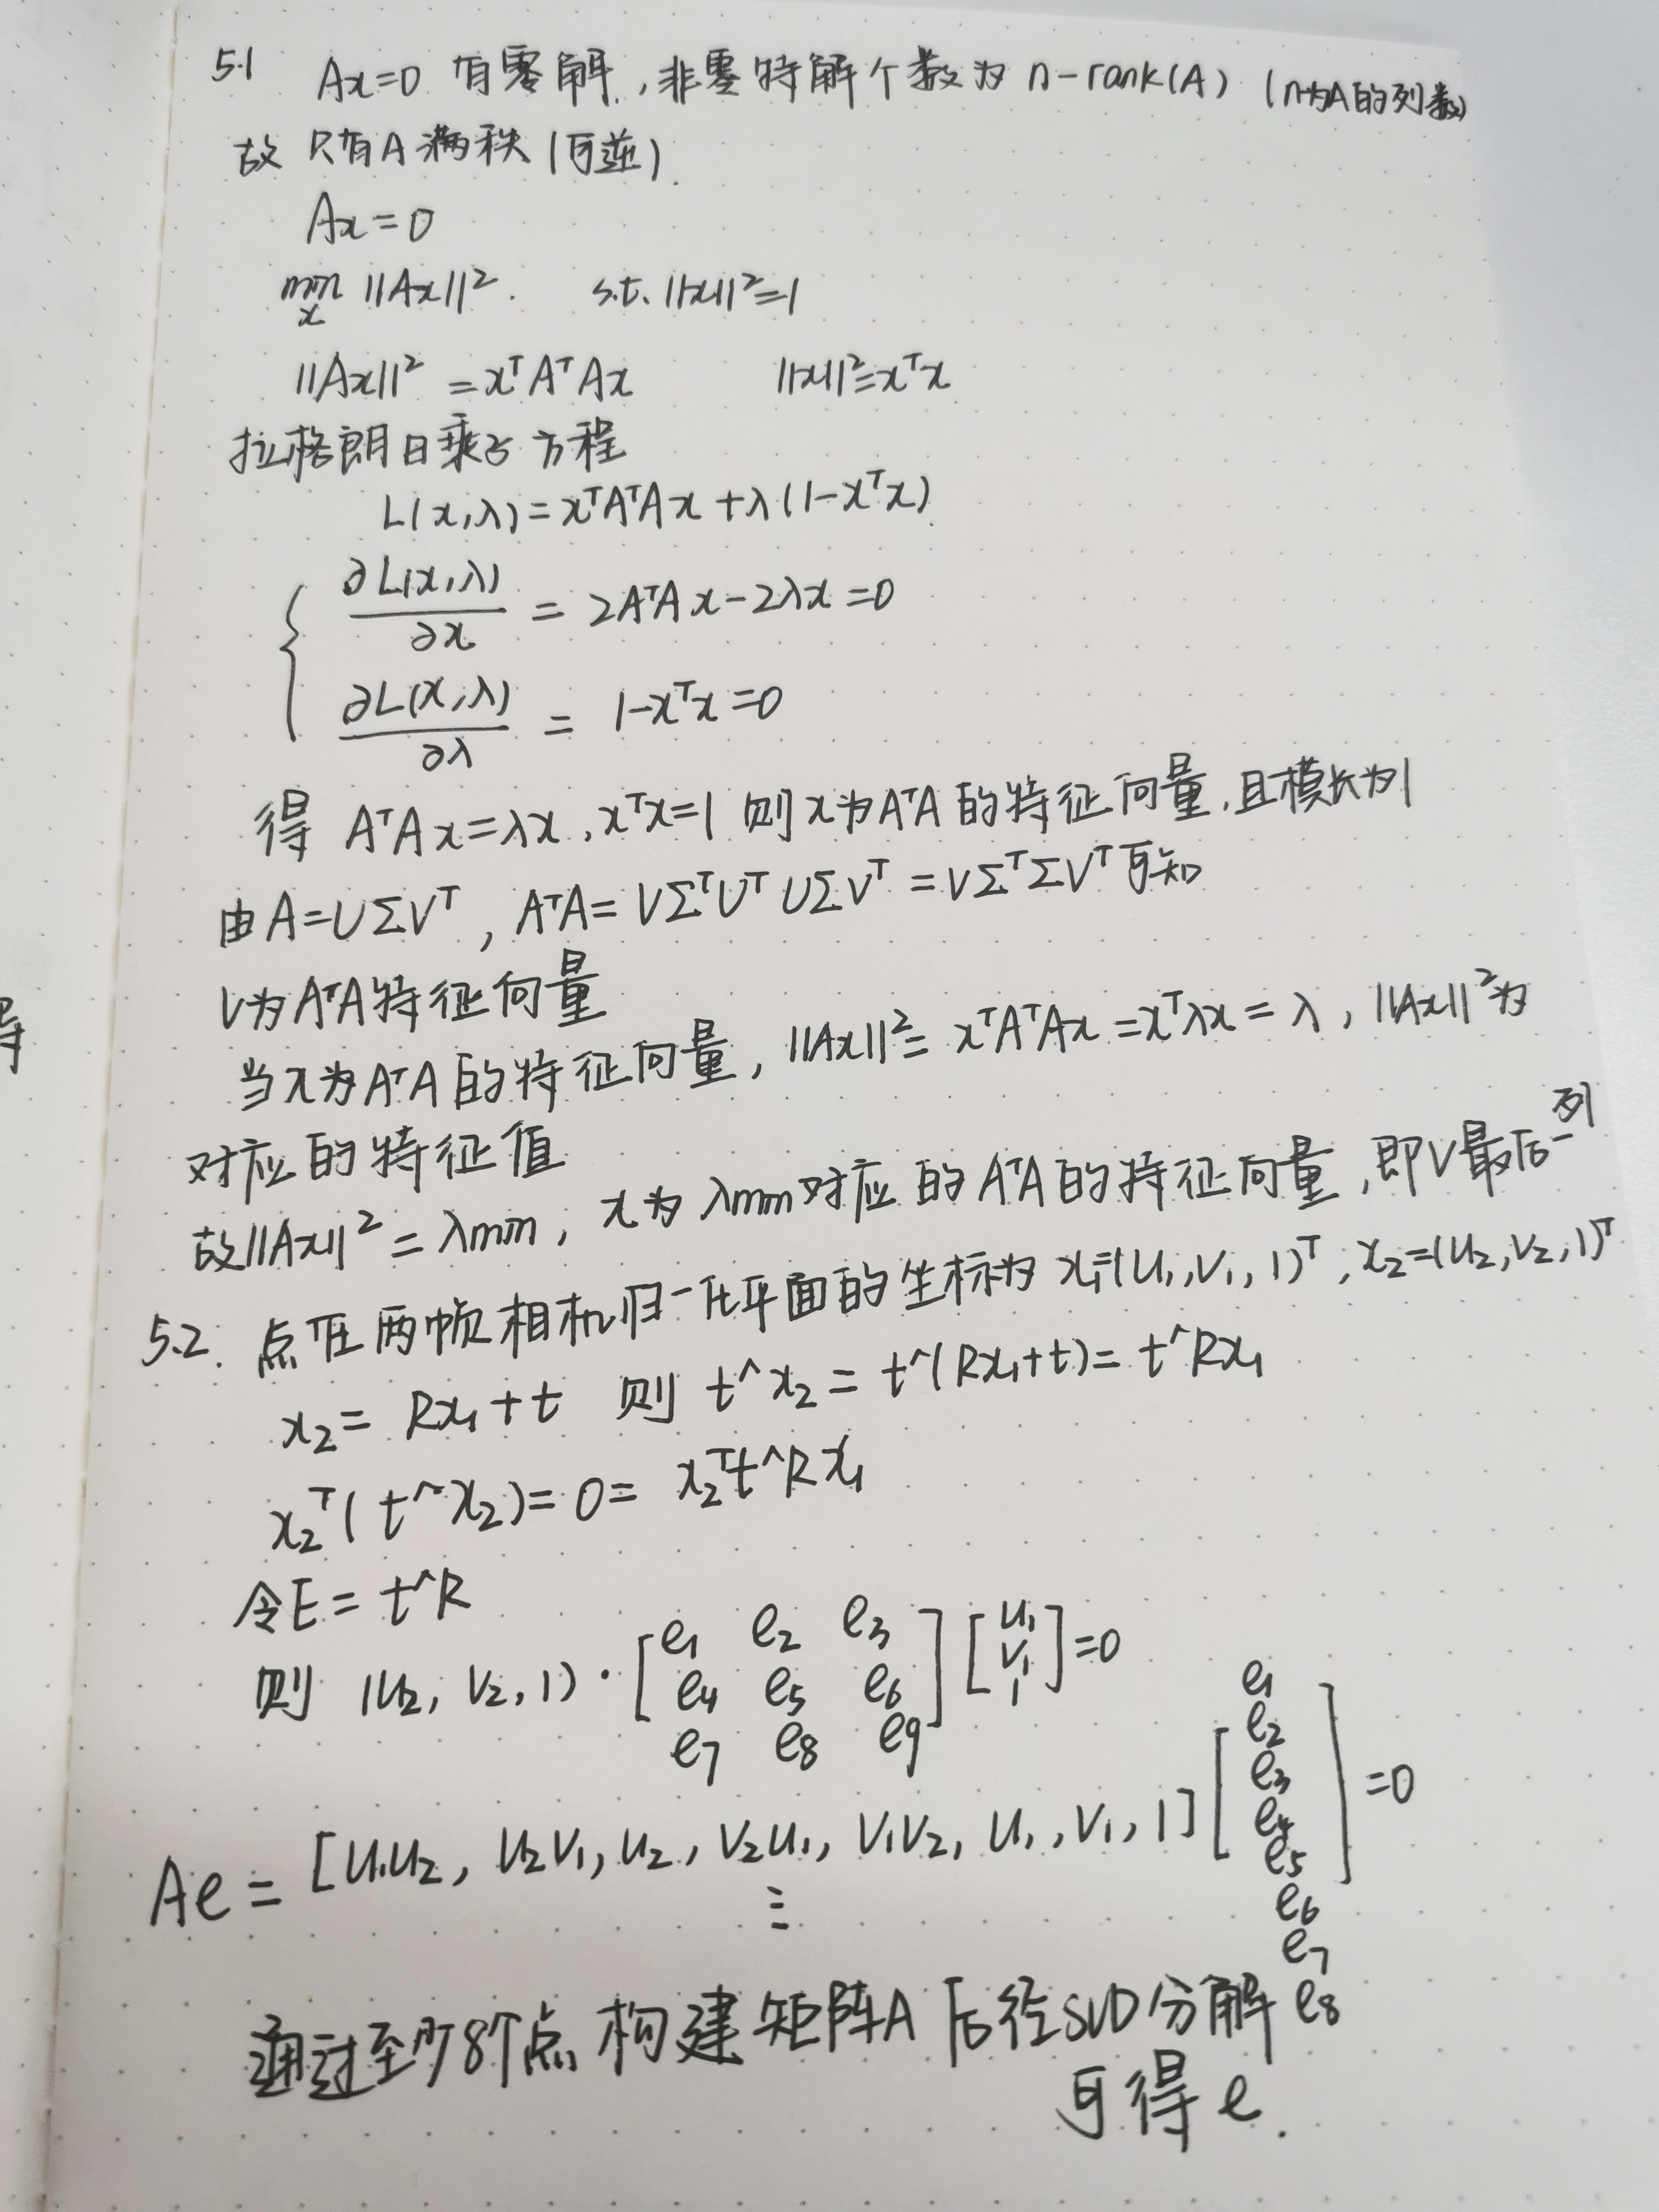 5.1 Ax=0 有零解,非零特解个数为 n-rank(A) (n为A的列数)
故 只有A满秩(可逆).
Ax=0
min ||Ax||². s.t. ||x||²=1
x
||Ax||² = xᵀAᵀAx ||x||²=xᵀx
拉格朗日乘子方程
L(x,λ)=xᵀAᵀAx+λ(1-xᵀx)
∂L(x,λ)/∂x = 2AᵀAx-2λx=0
∂L(x,λ)/∂λ = 1-xᵀx=0
得 AᵀAx=λx,xᵀx=1 则x为AᵀA的特征向量,且模长为1
由A=UΣVᵀ, AᵀA=VΣᵀUᵀUΣVᵀ=VΣᵀΣVᵀ可知
V为AᵀA特征向量
当x为AᵀA的特征向量, ||Ax||²=xᵀAᵀAx=xᵀλx=λ, ||Ax||²为
对应的特征值
故||Ax||²=λmin, x为λmin对应的AᵀA的特征向量,即V最后一列
5.2. 点在两帧相机归一化平面的坐标为x₁=(u₁,v₁,1)ᵀ, x₂=(u₂,v₂,1)ᵀ
x₂=Rx₁+t 则 t^x₂=t^(Rx₁+t)=t^Rx₁
x₂ᵀ(t^x₂)=0=x₂ᵀt^Rx₁
令E=t^R
则 (u₂,v₂,1)·[e₁ e₂ e₃ [u₁
e₄ e₅ e₆ v₁
e₇ e₈ e₉] 1]=0
Ae=[u₁u₂, u₂v₁, u₂, v₂u₁, v₁v₂, u₁, v₁, 1] [e₁ e₂ e₃ e₄ e₅ e₆ e₇ e₈]=0
⋮
通过至少8个点构建矩阵A后经SVD分解
可得e.